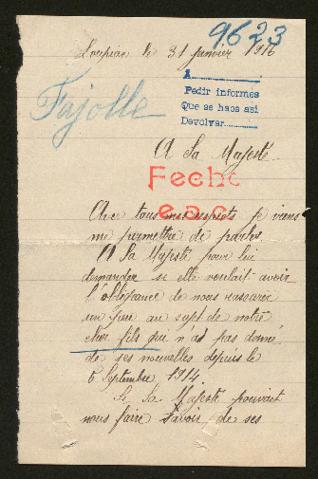 9623
Loupian le 31 janvier 1916
A
Pedir informes
Que se haos asi
Devolver
Fajolle
A Sa Majesté
Fecho
e.a.c.
Avec tous mes respects je viens
me permettre de parler
A Sa Majesté pour lui
demander si elle voulait avoir
l'obligeance de nous rassurer
un peu au sujet de notre
cher fils qui n'as pas donné
de ses nouvelles depuis le
6 Septembre 1914
Si Sa Majesté pouvait
nous faire savoir de ses